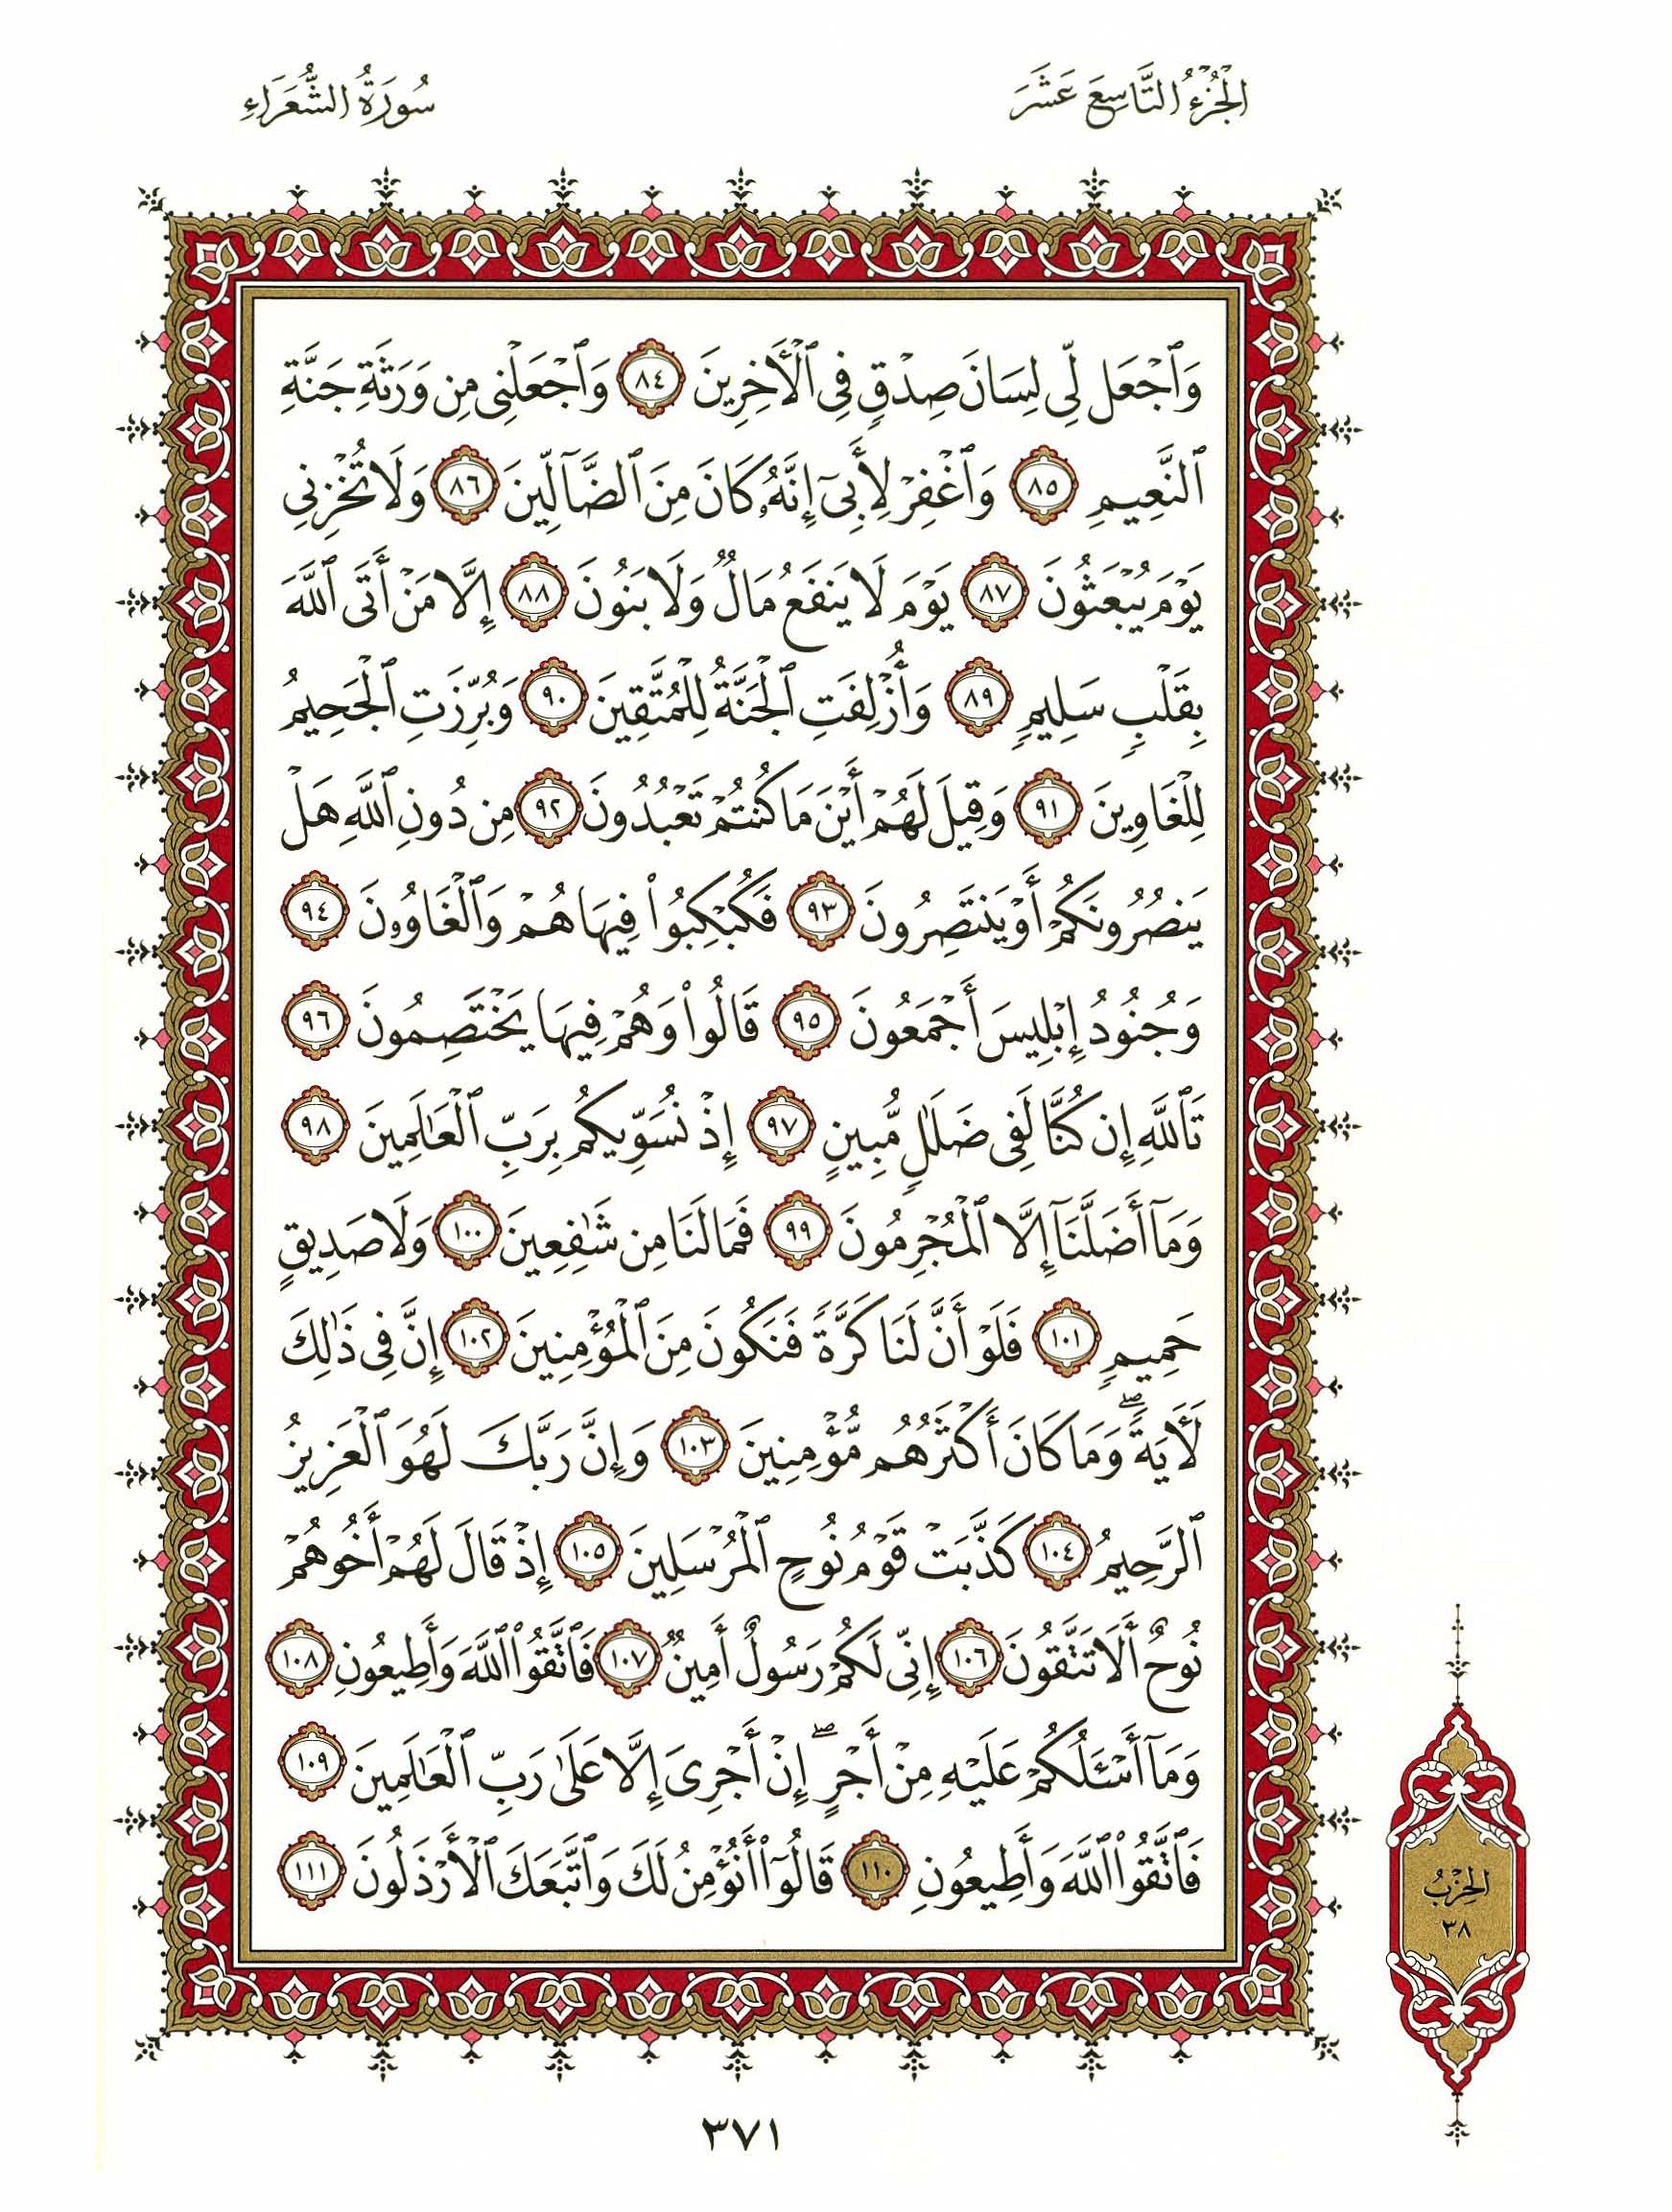 الجُزْءُ التَّاسِعَ عَشَرَ
سُورَةُ الشُّعَرَاءِ
وَٱجْعَل لِّى لِسَانَ صِدْقٍ فِى ٱلْأَخِرِينَ ٨٤ وَٱجْعَلْنِى مِن وَرَثَةِ جَنَّةِ
ٱلنَّعِيمِ ٨٥ وَٱغْفِرْ لِأَبِىٓ إِنَّهُۥ كَانَ مِنَ ٱلضَّآلِّينَ ٨٦ وَلَا تُخْزِنِى
يَوْمَ يُبْعَثُونَ ٨٧ يَوْمَ لَا يَنفَعُ مَالٌ وَلَا بَنُونَ ٨٨ إِلَّا مَنْ أَتَى ٱللَّهَ
بِقَلْبٍ سَلِيمٍ ٨٩ وَأُزْلِفَتِ ٱلْجَنَّةُ لِلْمُتَّقِينَ ٩٠ وَبُرِّزَتِ ٱلْجَحِيمُ
لِلْغَاوِينَ ٩١ وَقِيلَ لَهُمْ أَيْنَ مَا كُنتُمْ تَعْبُدُونَ ٩٢ مِن دُونِ ٱللَّهِ هَلْ
يَنصُرُونَكُمْ أَوْ يَنتَصِرُونَ ٩٣ فَكُبْكِبُوا۟ فِيهَا هُمْ وَٱلْغَاوُۥنَ ٩٤
وَجُنُودُ إِبْلِيسَ أَجْمَعُونَ ٩٥ قَالُوا۟ وَهُمْ فِيهَا يَخْتَصِمُونَ ٩٦
تَٱللَّهِ إِن كُنَّا لَفِى ضَلَٰلٍ مُّبِينٍ ٩٧ إِذْ نُسَوِّيكُم بِرَبِّ ٱلْعَٰلَمِينَ ٩٨
وَمَآ أَضَلَّنَآ إِلَّا ٱلْمُجْرِمُونَ ٩٩ فَمَا لَنَا مِن شَٰفِعِينَ ١٠٠ وَلَا صَدِيقٍ
حَمِيمٍ ١٠١ فَلَوْ أَنَّ لَنَا كَرَّةً فَنَكُونَ مِنَ ٱلْمُؤْمِنِينَ ١٠٢ إِنَّ فِى ذَٰلِكَ
لَأَيَةً ۖ وَمَا كَانَ أَكْثَرُهُم مُّؤْمِنِينَ ١٠٣ وَإِنَّ رَبَّكَ لَهُوَ ٱلْعَزِيزُ
ٱلرَّحِيمُ ١٠٤ كَذَّبَتْ قَوْمُ نُوحٍ ٱلْمُرْسَلِينَ ١٠٥ إِذْ قَالَ لَهُمْ أَخُوهُمْ
نُوحٌ أَلَا تَتَّقُونَ ١٠٦ إِنِّى لَكُمْ رَسُولٌ أَمِينٌ ١٠٧ فَٱتَّقُوا۟ ٱللَّهَ وَأَطِيعُونِ ١٠٨
وَمَآ أَسْـَٔلُكُمْ عَلَيْهِ مِنْ أَجْرٍ ۖ إِنْ أَجْرِىَ إِلَّا عَلَىٰ رَبِّ ٱلْعَٰلَمِينَ ١٠٩
فَٱتَّقُوا۟ ٱللَّهَ وَأَطِيعُونِ ١١٠ قَالُوٓا۟ أَنُؤْمِنُ لَكَ وَٱتَّبَعَكَ ٱلْأَرْذَلُونَ ١١١
الحِزْبُ
٣٨
٣٧١